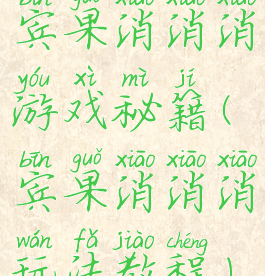 bīn guǒ xiāo xiāo xiāo
宾果消消消
yóu xì mì jí
游戏秘籍(
bīn guǒ xiāo xiāo xiāo
宾果消消消
wán fǎ jiào chéng
玩法教程)